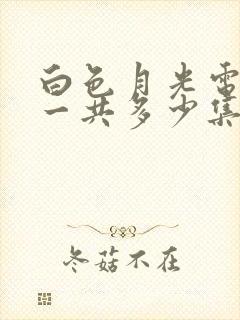 白色月光电
一共多少集
冬菇不在